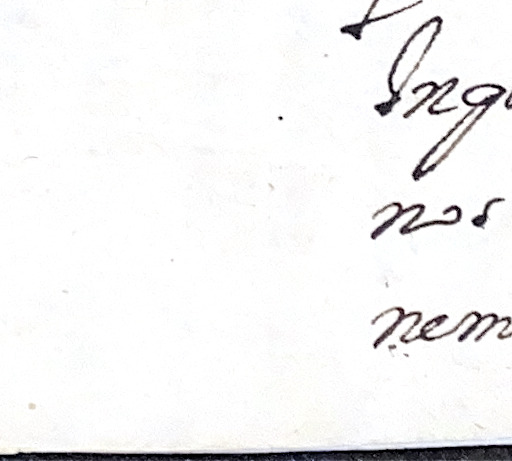 Inqu
nos
nem